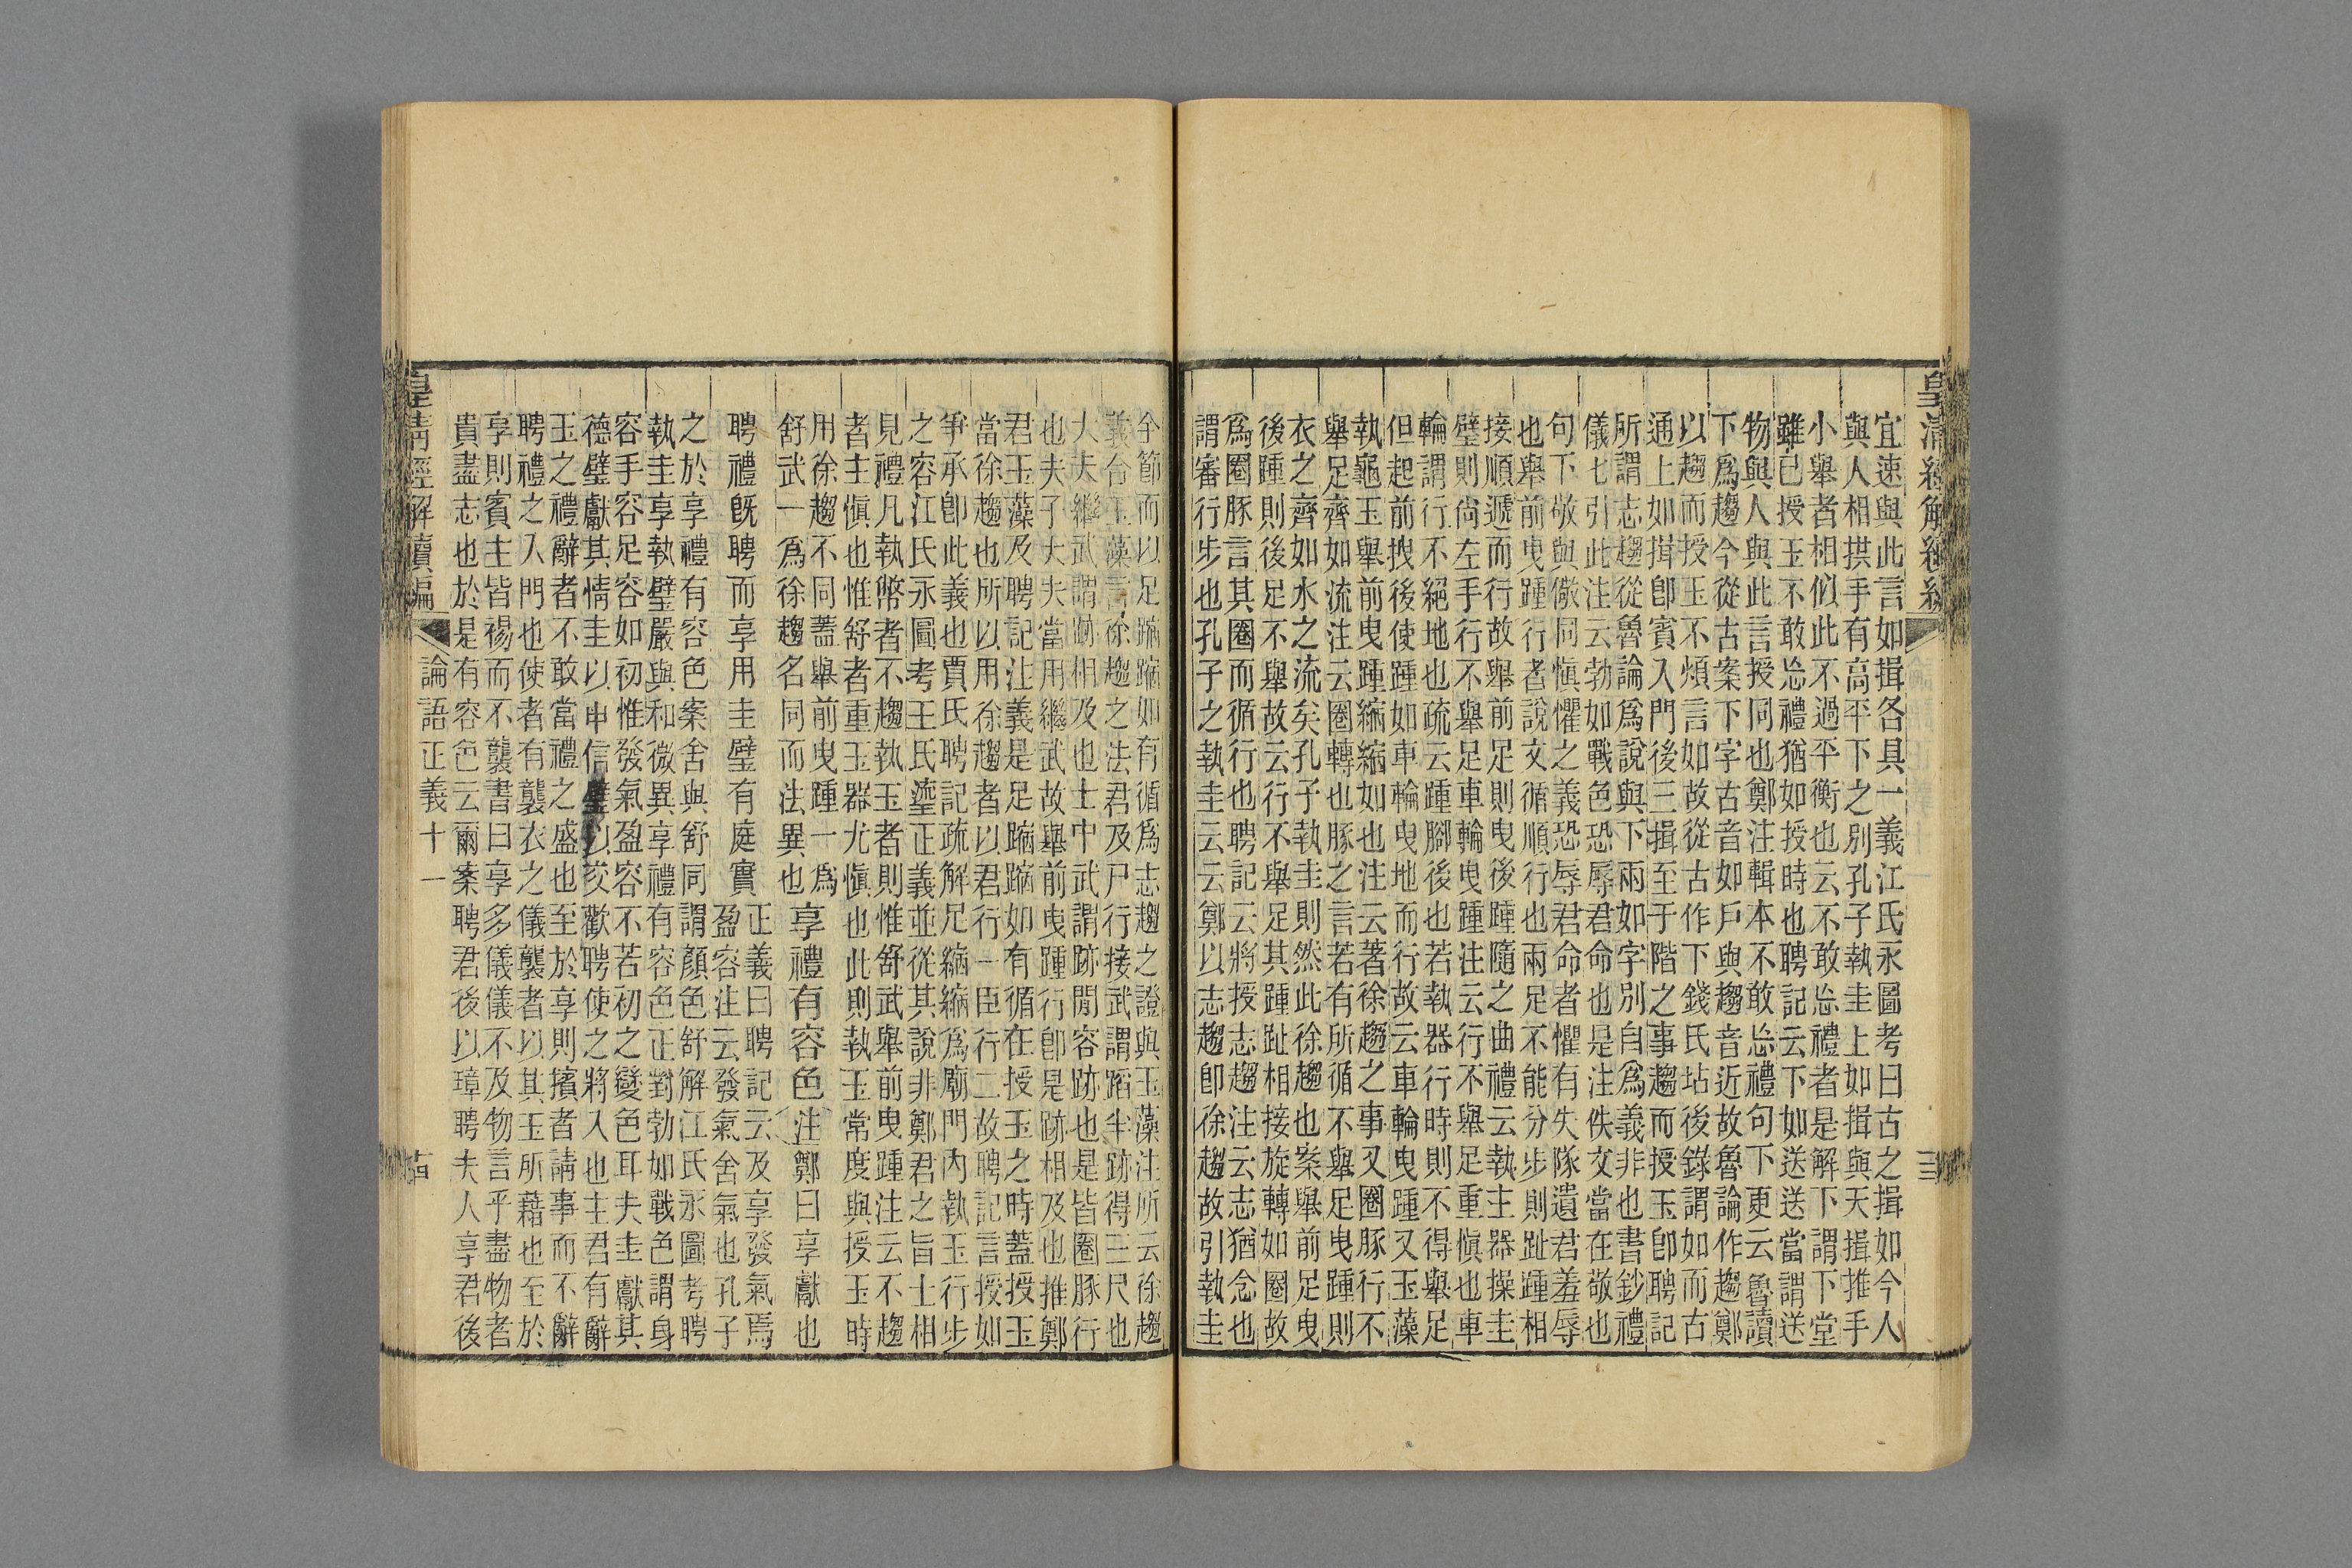 皇清經解續編
宜速與此言如揖各具一義江氏永圖考曰古之揖如今人
與人相拱手有高平下之別孔子執圭上如揖與天揖推手
小舉者相似此不過平衡也云不敢忘禮者是解下謂下堂
雖已授玉不敢忘禮猶如授時也聘記云下如送送當謂送
物與人與此言授同也鄭注輯本不敢忘禮句下更云魯讀
下爲趨今從古案下字古音如戶與趨音近故魯論作趨鄭
以趨而授玉不煩言如故從古作下錢氏坫後錄謂如而古
通上如揖卽賓入門後三揖至于階之事趨而授玉卽聘記
所謂志趨從魯論爲說與下兩如字別自爲義非也書鈔禮
儀七引此注云勃如戰色恐辱君命也是注佚文當在敬也
句下敬與儆同愼懼之義恐辱君命者懼有失隊遺君羞辱
也舉前曳踵行者說文循順行也兩足不能分步則趾踵相
接順遞而行故舉前足則曳後踵隨之曲禮云執主器操圭
璧則尙左手行不舉足車輪曳踵注云行不舉足重愼也車
輪謂行不絕地也疏云踵腳後也若執器行時則不得舉足
但起前拽後使踵如車輪曳地而行故云車輪曳踵又玉藻
執龜玉舉前曳踵縮縮如也注云著徐趨之事又圈豚行不
舉足齊如流注云圈轉也豚之言若有所循不舉足曳踵則
衣之齊如水之流矣孔子執圭則然此徐趨也案舉前足曳
後踵則後足不舉故云行不舉足其踵趾相接旋轉如圈故
爲圈豚言其圈而循行也聘記云將授志趨注云志猶念也
謂審行步也孔子之執圭云云鄭以志趨卽徐趨故引執圭
全節而以足蹜蹜如有循爲志趨之證與玉藻注所云徐趨
義合玉藻言徐趨之法君及尸行接武謂蹈半跡得三尺也
大夫繼武謂跡相及也士中武謂跡閒容跡也是皆圈豚行
也夫子大夫當用繼武故舉前曳踵行卽是跡相及也推鄭
君玉藻及聘記注義是足蹜蹜如有循在授玉之時蓋授玉
當徐趨也所以用徐趨者以君行一臣行二故聘記言授如
爭承卽此義也賈氏聘記疏解足縮縮爲廟門內執玉行步
之容江氏永圖考王氏瀣正義並從其說非鄭君之旨士相
見禮凡執幣者不趨執玉者則惟舒武舉前曳踵注云不趨
者主愼也惟舒者重玉器尤愼也此則執玉常度與授玉時
用徐趨不同蓋舉前曳踵一爲
舒武一爲徐趨名同而法異也
享禮有容色注鄭曰享獻也
聘禮旣聘而享用圭璧有庭實
正義曰聘記云及享發氣焉
盈容注云發氣舍氣也孔子
之於享禮有容色案舍與舒同謂顏色舒解江氏永圖考聘
執圭享執璧嚴與和微異享禮有容色正對勃如戰色謂身
容手容足容如初惟發氣盈容不若初之變色耳夫圭獻其
德璧獻其情圭以申信璧以交歡聘使之將入也主君有辭
玉之禮辭者不敢當禮之盛也至於享則擯者請事而不辭
聘禮之入門也使者有襲衣之儀襲者以其玉所藉也至於
享則賓主皆裼而不襲書曰享多儀儀不及物言乎盡物者
貴盡志也於是有容色云爾案聘君後以璋聘夫人享君後
皇清經解續編
論語正義十一